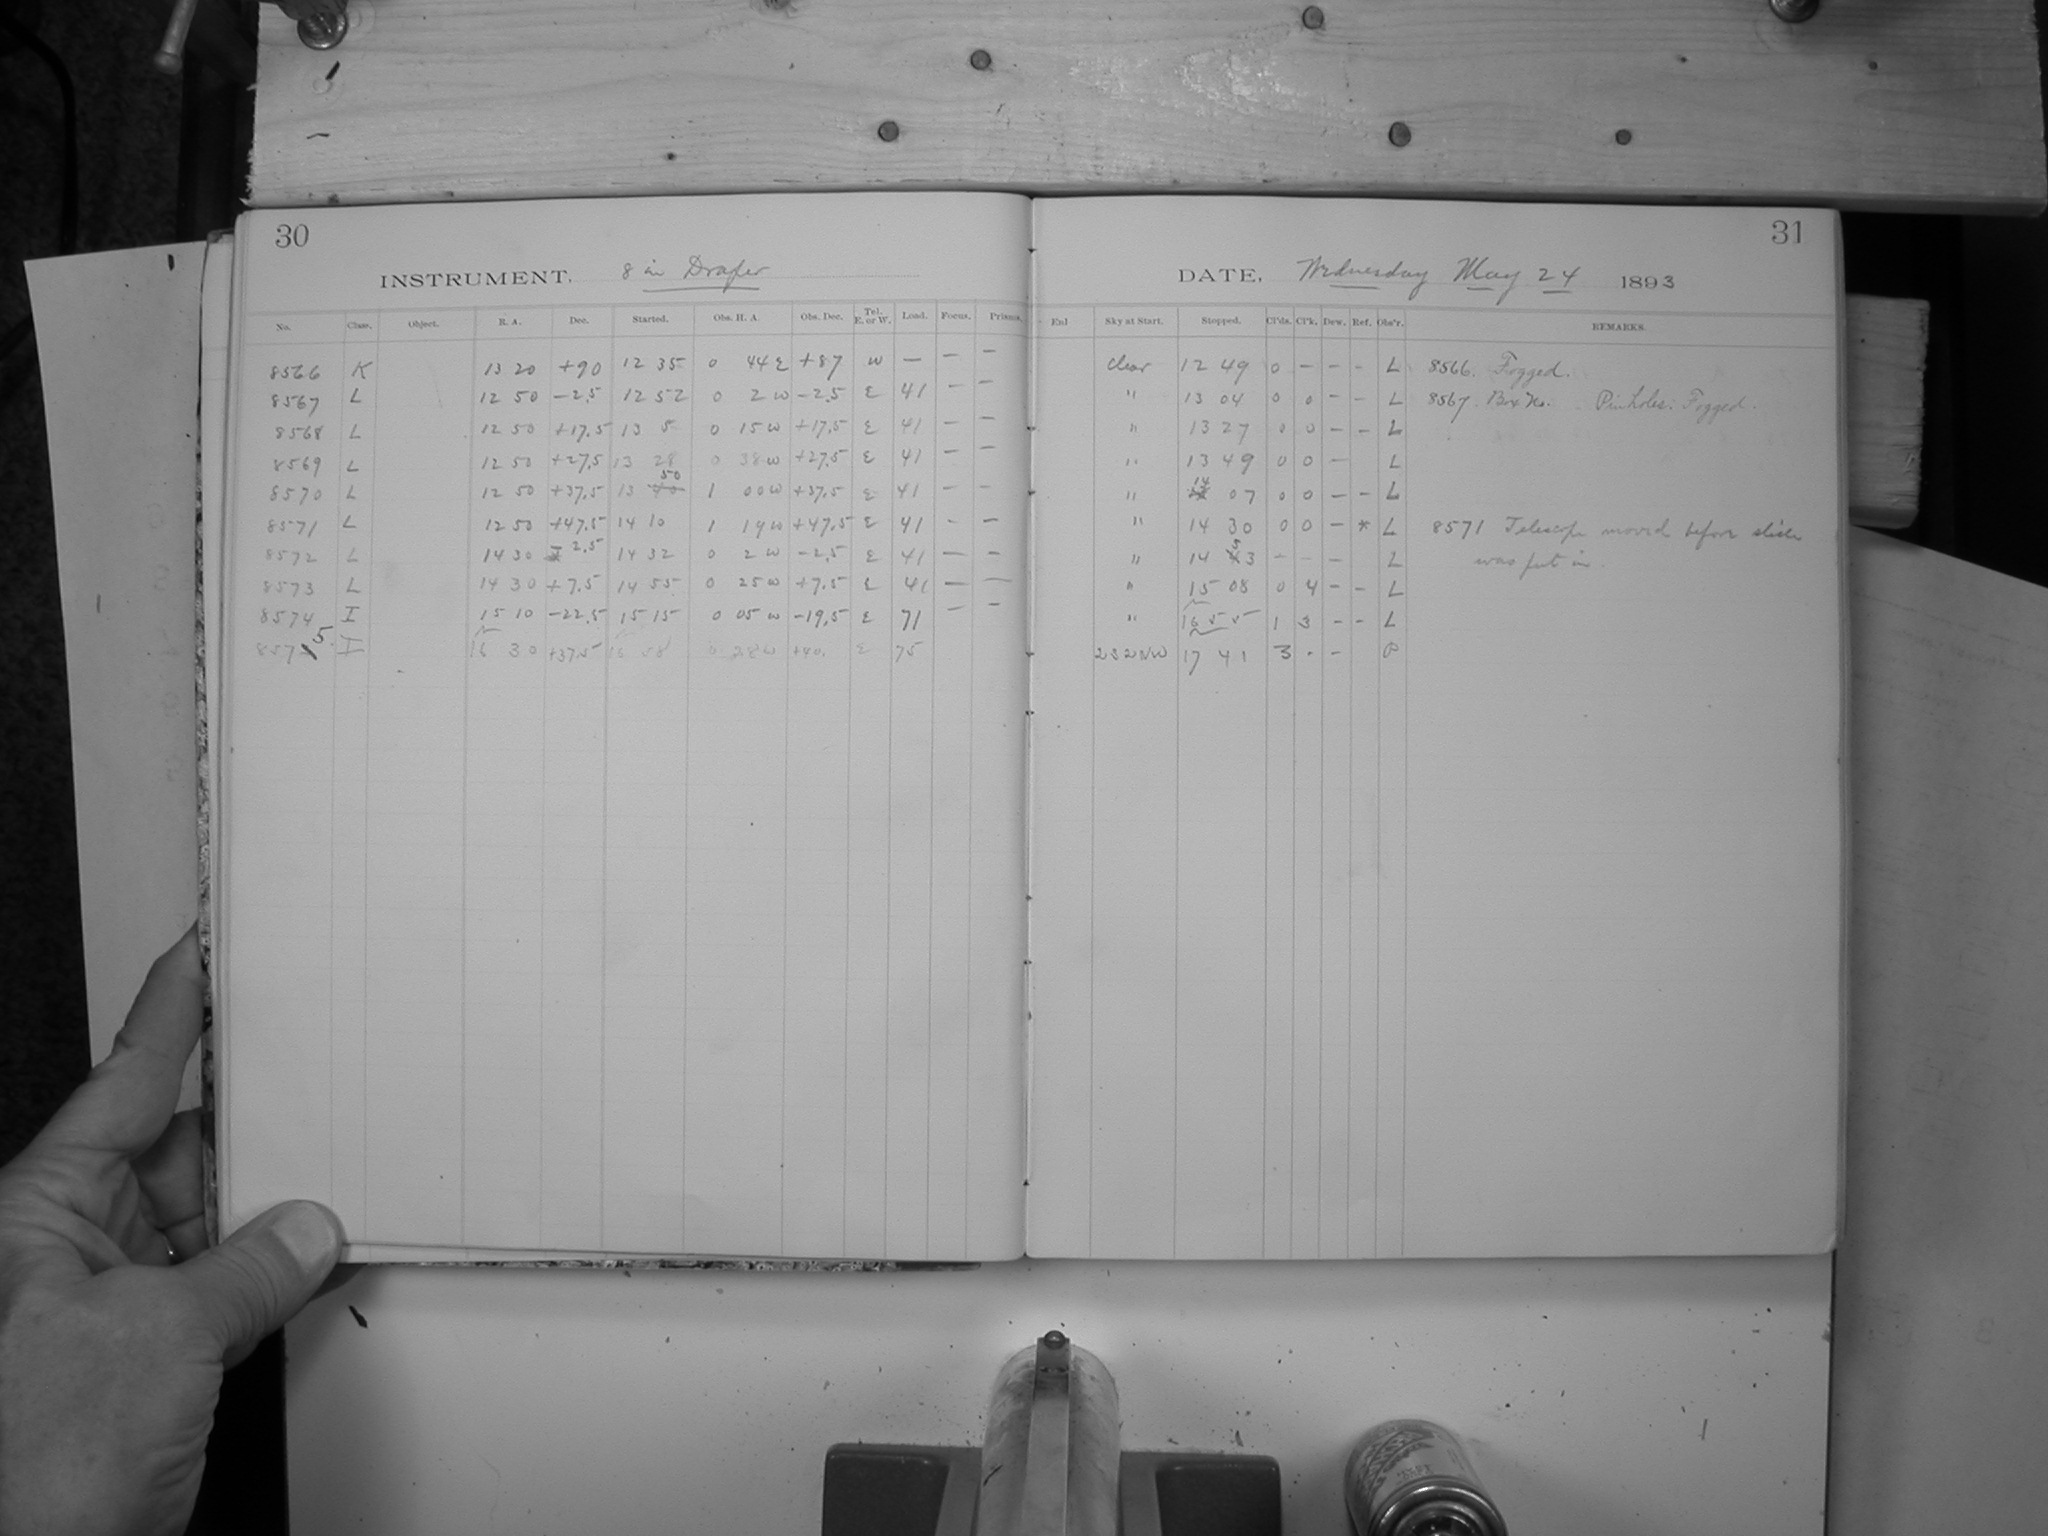 30
INSTRUMENT, 8 in Draper
No. Class. Object. R. A. Dec. Started. Obs. H. A. Obs. Dec. Tel. E. or W. Load. Focus. Prisms.
8566 K 13 20 +90 12 35 0 44 E +87 W — — —
8567 L 12 50 -2.5 12 52 0 2 W -2.5 E 41 — —
8568 L 12 50 +17.5 13 5 0 15 W +17.5 E 41 — —
8569 L 12 50 +27.5 13 28 0 38 W +27.5 E 41 — —
8570 L 12 50 +37.5 13 50 1 00 W +37.5 E 41 — —
8571 L 12 50 +47.5 14 10 1 19 W +47.5 E 41 - —
8572 L 14 30 -2.5 14 32 0 2 W -2.5 E 41 — —
8573 L 14 30 +7.5 14 55 0 25 W +7.5 E 41 — —
8574 I 15 10 -22.5 15 15 0 05 W -19.5 E 71 — —
8575 I 16 30 +37.5 16 58 0 28 W +40. E 75
31
DATE, Wednesday May 24 1893
Enl Sky at Start. Stopped. Cl'ds. Cl'k. Dew. Ref. Obs'r. REMARKS.
clear 12 49 0 — — - L 8566. Fogged.
" 13 04 0 0 — - L 8567. Box No. Pinholes. Fogged.
" 13 27 0 0 — - L
" 13 49 0 0 — L
" 14 07 0 0 — - L
" 14 30 0 0 — * L 8571 Telescope moved before slide
" 14 53 - — — L was put in.
" 15 08 0 4 — - L
" 16 55 1 3 - - L
2S2NW 17 41 3 - - P